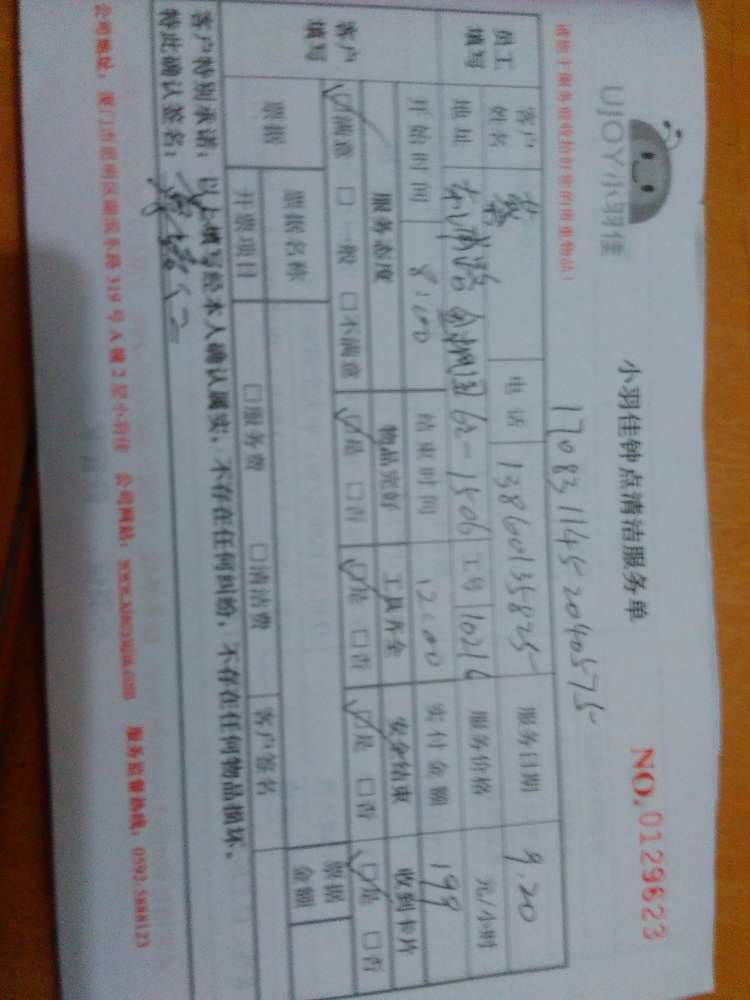 UJOY小羽佳
小羽佳钟点清洁服务单
NO.0129623
请您于服务前收拾好您的贵重物品！
1708311452040575
员工填写
客户姓名 蔡 电话 13860135825 服务日期 9.20
地址 60-1506 工号 10216 服务价格 元/小时
开始时间 8:00 结束时间 12:00 实付金额 199
客户填写
服务态度 物品完好 工具齐全 安全结束 收到卡片
☑满意 □一般 □不满意 ☑是 □否 ☑是 □否 ☑是 □否 ☑是 □否
票据 票据名称 票据金额
开票项目 □服务费 □清洁费 客户签名
客户特别承诺：以上填写经本人确认属实，不存在任何纠纷，不存在任何物品损坏。
特此确认签名：
公司地址：厦门市思明区湖滨东路319号A幢2层小羽佳 公司网站： 服务监督热线：0592-5888123